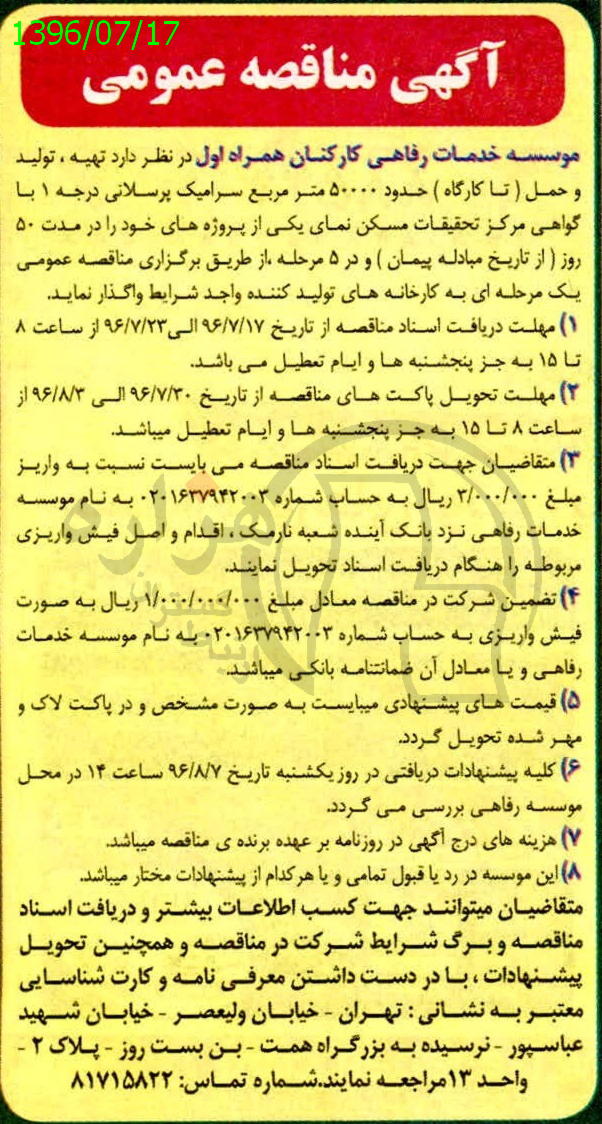 1396/07/17
آگهی مناقصه عمومی
موسسه خدمات رفاهی کارکنان همراه اول در نظر دارد تهیه ، تولید
و حمل ( تا کارگاه ) حدود ۵۰۰۰۰ متر مربع سرامیک پرسلانی درجه ۱ با
گواهی مرکز تحقیقات مسکن نمای یکی از پروژه های خود را در مدت ۵۰
روز ( از تاریخ مبادله پیمان ) و در ۵ مرحله ،از طریق برگزاری مناقصه عمومی
یک مرحله ای به کارخانه های تولید کننده واجد شرایط واگذار نماید.
۱) مهلت دریافت اسناد مناقصه از تاریخ ۹۶/۷/۱۷ الی۹۶/۷/۲۳ از ساعت ۸
تا ۱۵ به جز پنجشنبه ها و ایام تعطیل می باشد.
۲) مهلت تحویل پاکت های مناقصه از تاریخ ۹۶/۷/۳۰ الی ۹۶/۸/۳ از
ساعت ۸ تا ۱۵ به جز پنجشنبه ها و ایام تعطیل میباشد.
۳) متقاضیان جهت دریافت اسناد مناقصه می بایست نسبت به واریز
مبلغ ۳/۰۰۰/۰۰۰ ریال به حساب شماره ۰۲۰۱۶۳۷۹۴۲۰۰۳ به نام موسسه
خدمات رفاهی نزد بانک آینده شعبه نارمک ، اقدام و اصل فیش واریزی
مربوطه را هنگام دریافت اسناد تحویل نمایند.
۴) تضمین شرکت در مناقصه معادل مبلغ ۱/۰۰۰/۰۰۰/۰۰۰ ریال به صورت
فیش واریزی به حساب شماره ۰۲۰۱۶۳۷۹۴۲۰۰۳ به نام موسسه خدمات
رفاهی و یا معادل آن ضمانتنامه بانکی میباشد.
۵) قیمت های پیشنهادی میبایست به صورت مشخص و در پاکت لاک و
مهر شده تحویل گردد.
۶) کلیه پیشنهادات دریافتی در روز یکشنبه تاریخ ۹۶/۸/۷ ساعت ۱۴ در محل
موسسه رفاهی بررسی می گردد.
۷) هزینه های درج آگهی در روزنامه بر عهده برنده ی مناقصه میباشد.
۸) این موسسه در رد یا قبول تمامی و یا هرکدام از پیشنهادات مختار میباشد.
متقاضیان میتوانند جهت کسب اطلاعات بیشتر و دریافت اسناد
مناقصه و برگ شرایط شرکت در مناقصه و همچنین تحویل
پیشنهادات ، با در دست داشتن معرفی نامه و کارت شناسایی
معتبر به نشانی : تهران - خیابان ولیعصر - خیابان شهید
عباسپور - نرسیده به بزرگراه همت - بن بست روز - پلاک ۲ -
واحد ۱۳مراجعه نمایند.شماره تماس: ۸۱۷۱۵۸۲۲